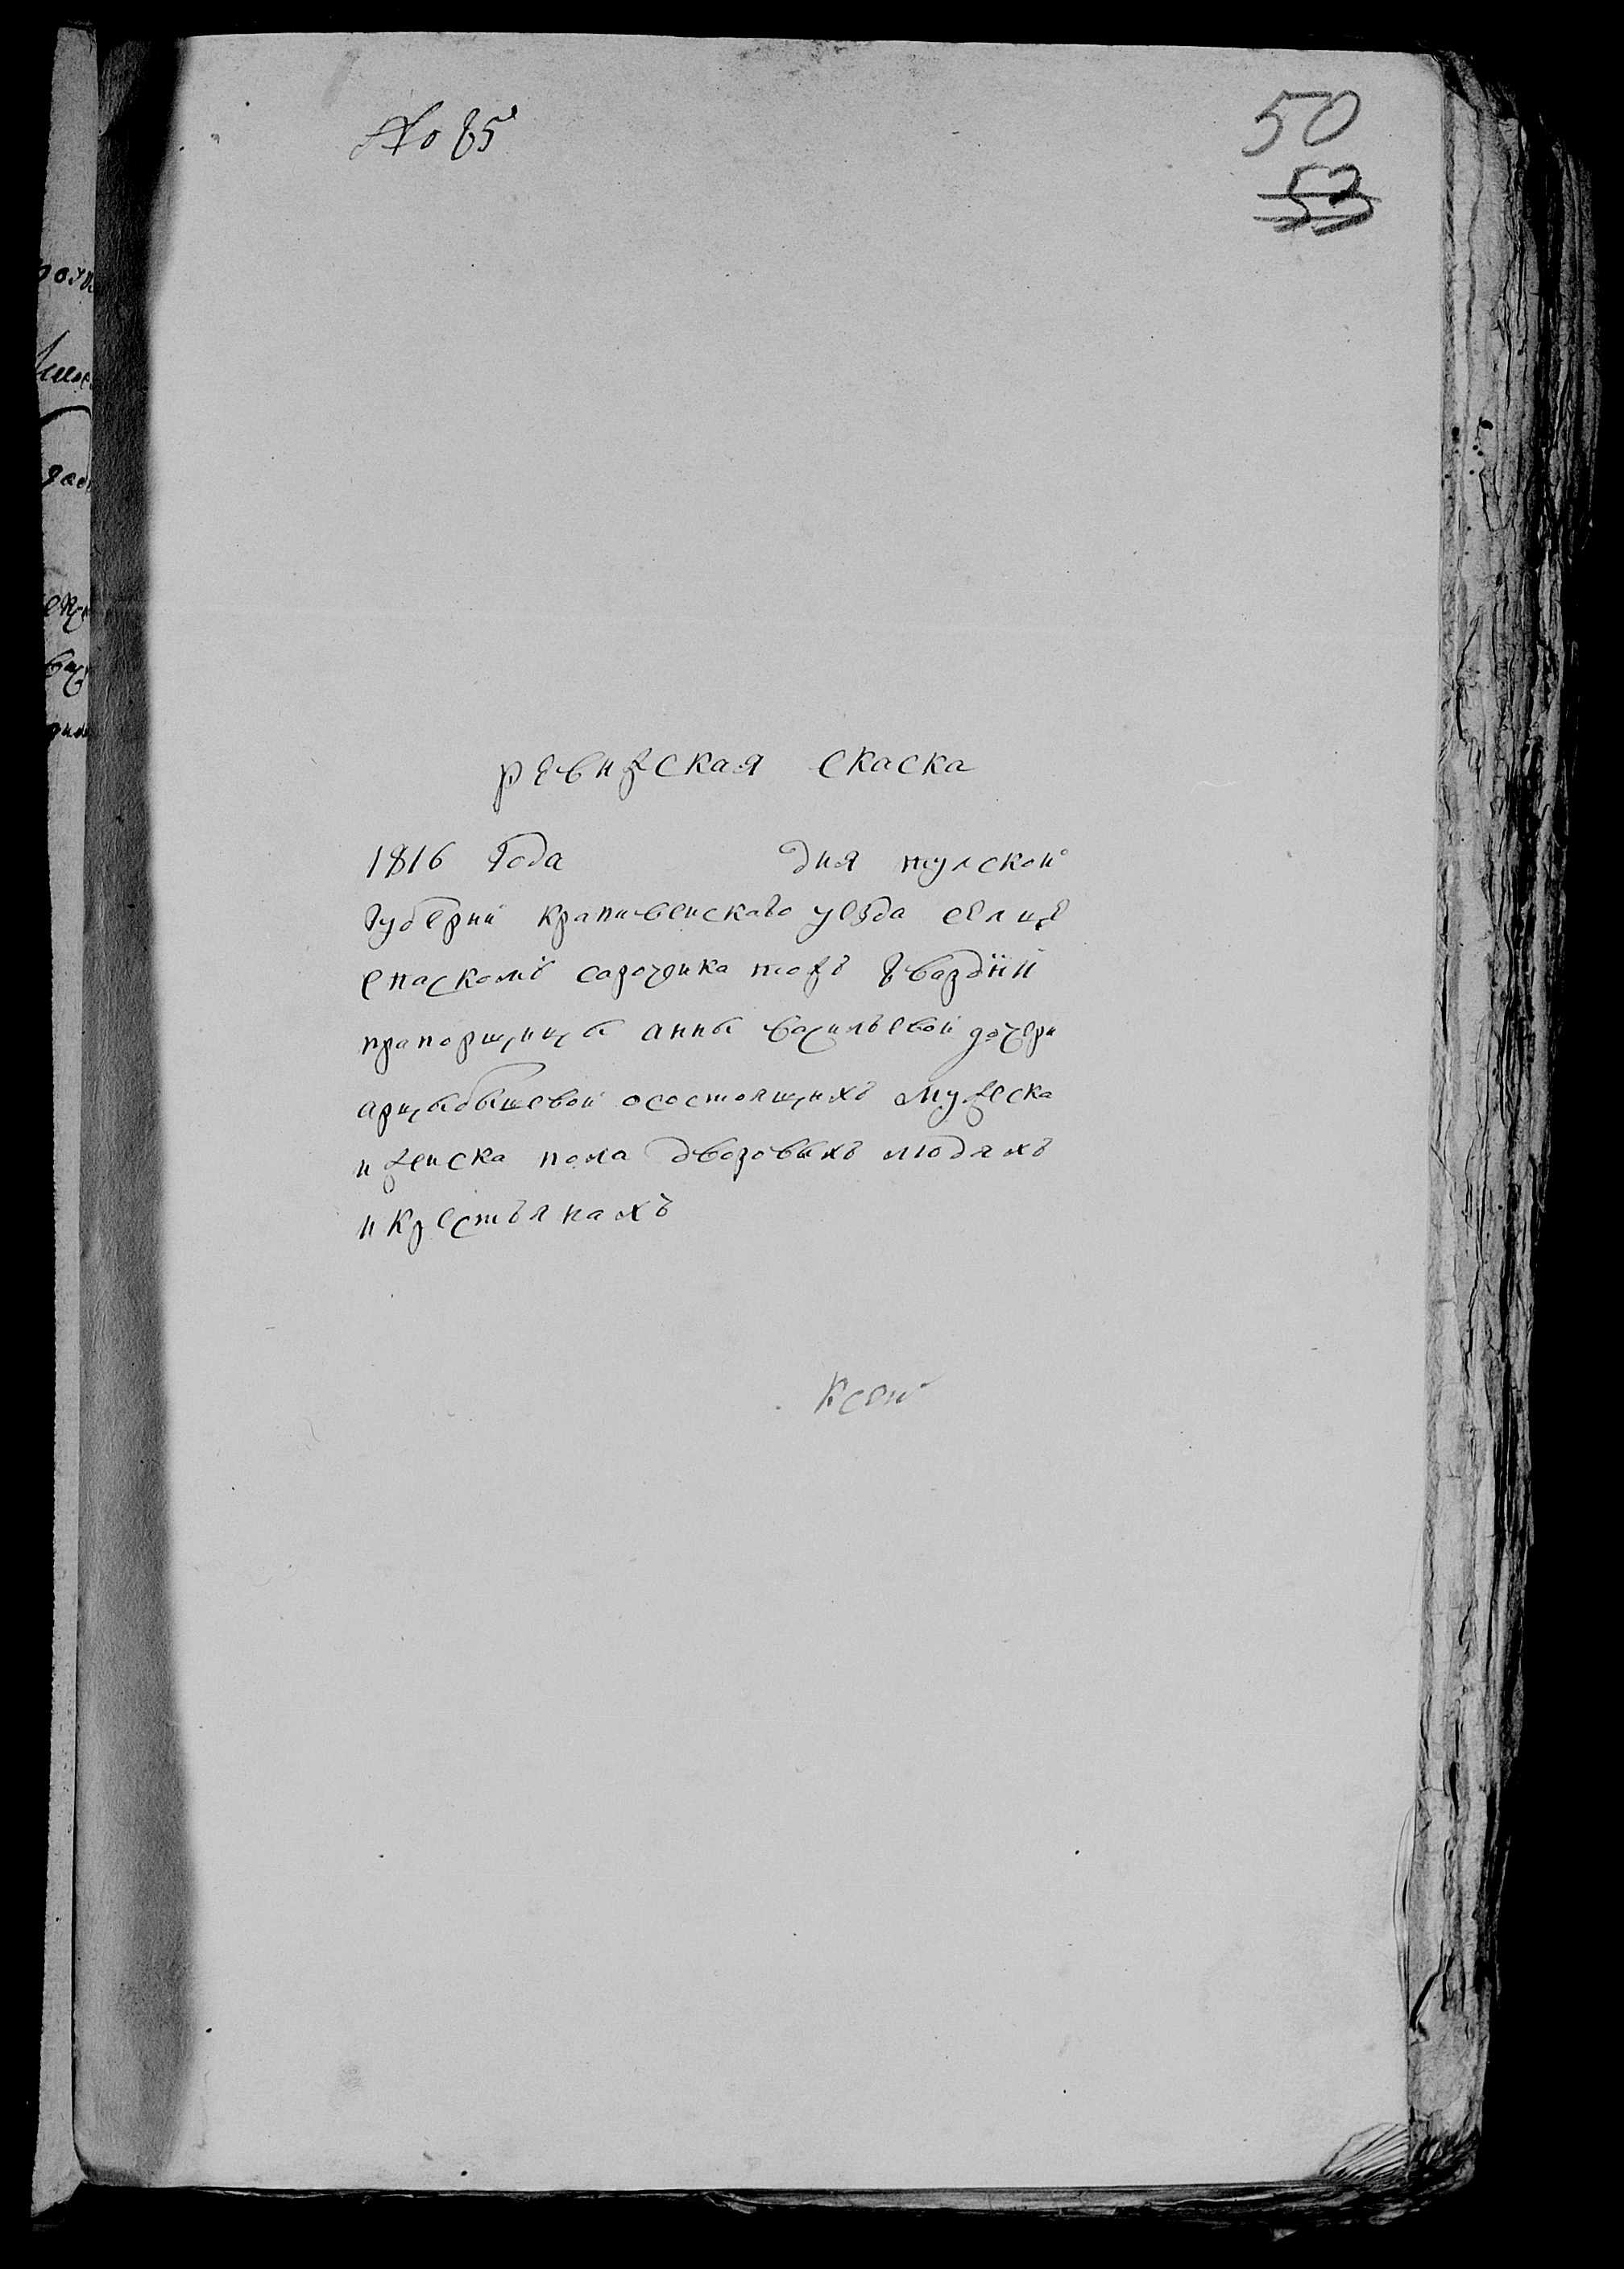 № 85
50
53
ревижская скаска
1816 года дня тулской
губерни крапивенскаго уезда сельце
спаскомъ сарочинка тожъ гвардии
прапорщицы анны васильевой дочери
арцыбышевой осостоящихъ мужеска
иженска пола дворовыхъ людяхъ
икрестьянахъ